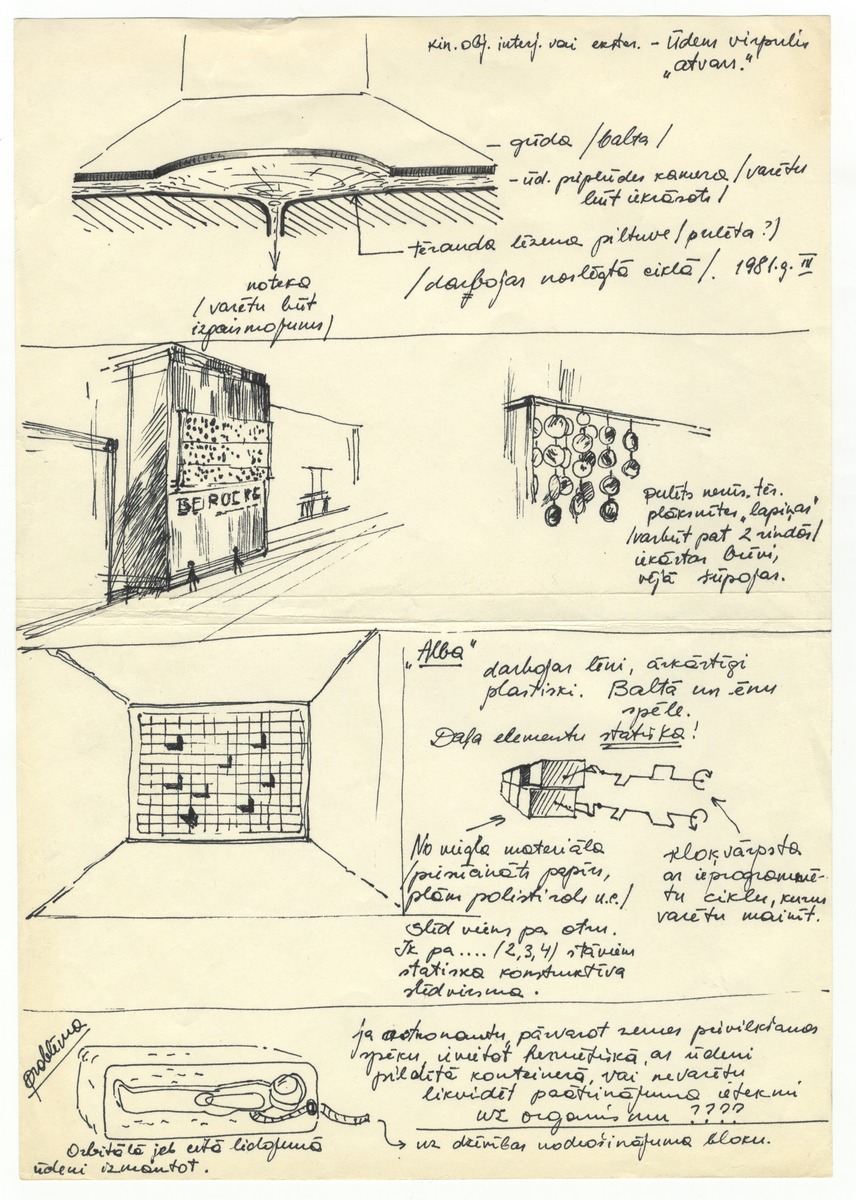 kin. obj. interj. vai ekster. – ūdens virpulis
„atvars."
– grīda /balta/
– ūd. pieplūdes kamera /varētu
būt iekrāsots/
tērauda lēzena piltuve /pulēta?/
/darbojas noslēgtā ciklā/. 1981.g. IV
noteka
/varētu būt
izgaismojums/
BEROCKE
pulēts nerūs. tēr.
plāksnītes „lapiņas"
/varbūt pat 2 rindās/
iekārtas brīvi,
vējā šūpojas.
„Alba"
darbojas lēni, ārkārtīgi
plastiski. Baltā un ēnu
spēle.
Daļa elementu statiska!
No viegla materiāla
/piesūcināts papīrs,
plāns polistirols u.c./
slīd viens pa otru.
Ik pa .... /2,3,4/ stāviem
statiska konstruktīva
slīdvirsma.
kloķvārpsta
ar ieprogrammē-
tu ciklu, kurus
varētu mainīt.
problēma
ja astronautu, pārvarot zemes pievilkšanas
spēku, ievietot hermētiskā, ar ūdeni
pildītā konteinerā, vai nevarētu
likvidēt paātrinājuma ietekmi
uz organismu ????
uz dzīvības nodrošinājuma bloku.
Orbitālā jeb citā lidojumā
ūdeni izmantot.